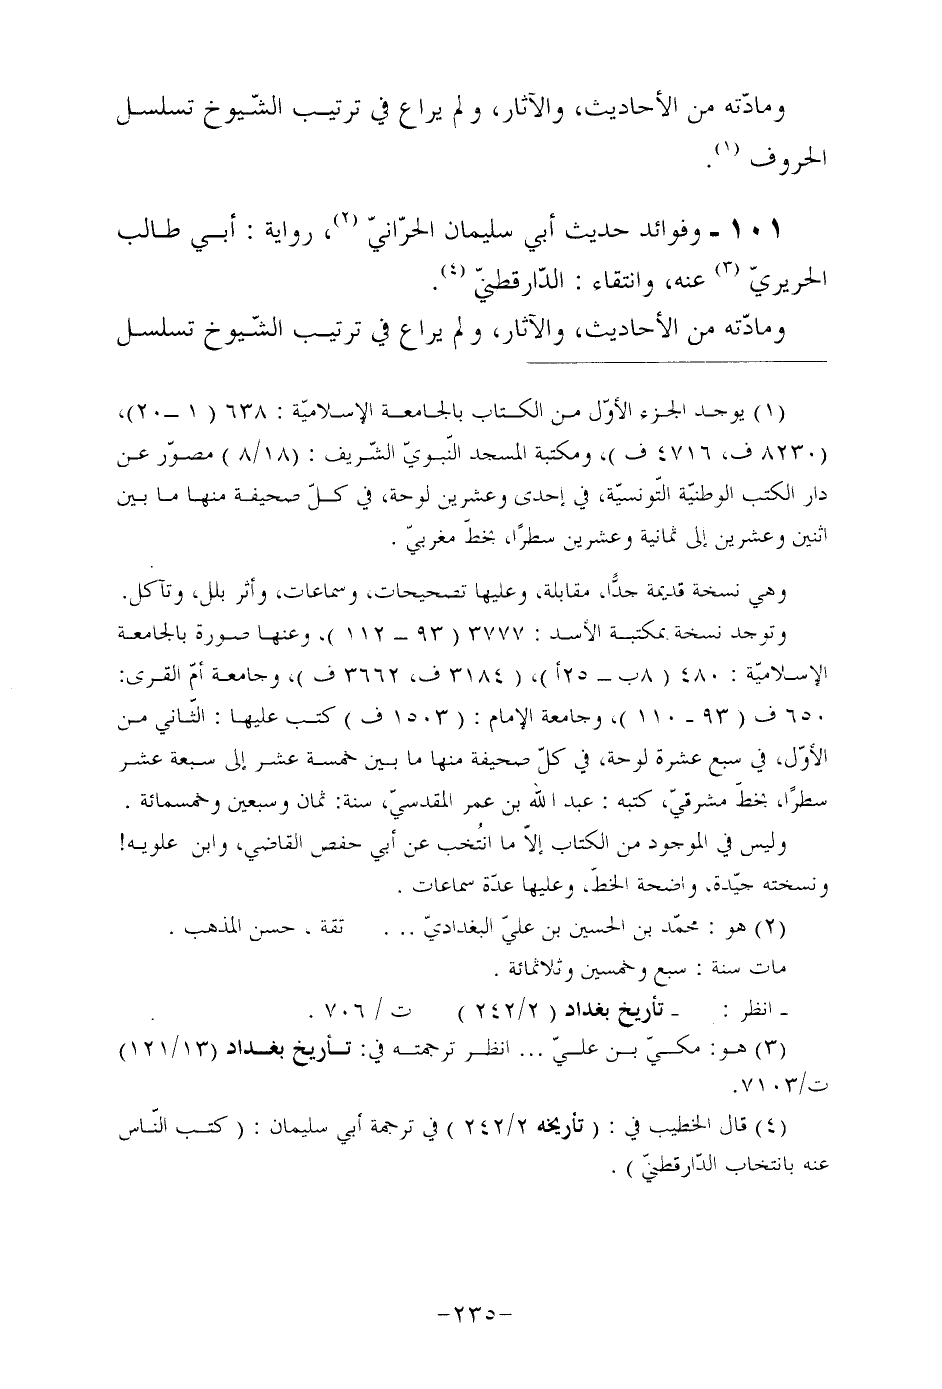 ومادّته من الأحاديث، والآثار، و لم يراع في ترتيب الشّيوخ تسلسل
الحروف (١).
١٠١ - وفوائد حديث أبي سليمان الحرّانيّ (٢)، رواية : أبي طالب
الحريريّ (٣) عنه، وانتقاء : الدّارقطنيّ (٤).
ومادّته من الأحاديث، والآثار، و لم يراع في ترتيب الشّيوخ تسلسل
(١) يوجد الجزء الأوّل من الكتاب بالجامعة الإسلاميّة : ٦٣٨ ( ١ –٢٠)،
(٨٢٣٠ ف، ٤٧١٦ ف )، ومكتبة المسجد النّبويّ الشّريف : (٨/١٨ ) مصوّر عن
دار الكتب الوطنيّة التّونسيّة، في إحدى وعشرين لوحة، في كلّ صحيفة منها ما بين
اثنين وعشرين إلى ثمانية وعشرين سطرًا، بخطّ مغربيّ .
وهي نسخة قديمة جدًّا، مقابلة، وعليها تصحيحات، وسماعات، وأثر بلل، وتآكل.
وتوجد نسخة بمكتبة الأسد : ٣٧٧٧ ( ٩٣ – ١١٢ )، وعنها صورة بالجامعة
الإسلاميّة : ٤٨٠ ( ٨ب – ٢٥أ )، ( ٣١٨٤ ف، ٣٦٦٢ ف )، وجامعة أمّ القرى:
٦٥٠ ف ( ٩٣ - ١١٠ )، وجامعة الإمام : ( ١٥٠٣ ف ) كتب عليها : الثّاني من
الأوّل، في سبع عشرة لوحة، في كلّ صحيفة منها ما بين خمسة عشر إلى سبعة عشر
سطرًا، بخطّ مشرقيّ، كتبه : عبد الله بن عمر المقدسيّ، سنة: ثمان وسبعين وخمسمائة .
وليس في الموجود من الكتاب إلاّ ما انتُخب عن أبي حفص القاضي، وابن علويه!
ونسخته جيّدة، واضحة الخطّ، وعليها عدّة سماعات .
(٢) هو : محمّد بن الحسين بن عليّ البغداديّ ... ثقة . حسن المذهب .
مات سنة : سبع وخمسين وثلاثمائة .
- انظر : - تأريخ بغداد ( ٢٤٢/٢ ) ت / ٧٠٦ .
(٣) هو: مكيّ بن عليّ ... انظر ترجمته في: تأريخ بغداد (١٢١/١٣)
ت/٧١٠٣.
(٤) قال الخطيب في : ( تأريخه ٢٤٢/٢ ) في ترجمة أبي سليمان : ( كتب النّاس
عنه بانتخاب الدّارقطنيّ ) .
-٢٣٥-